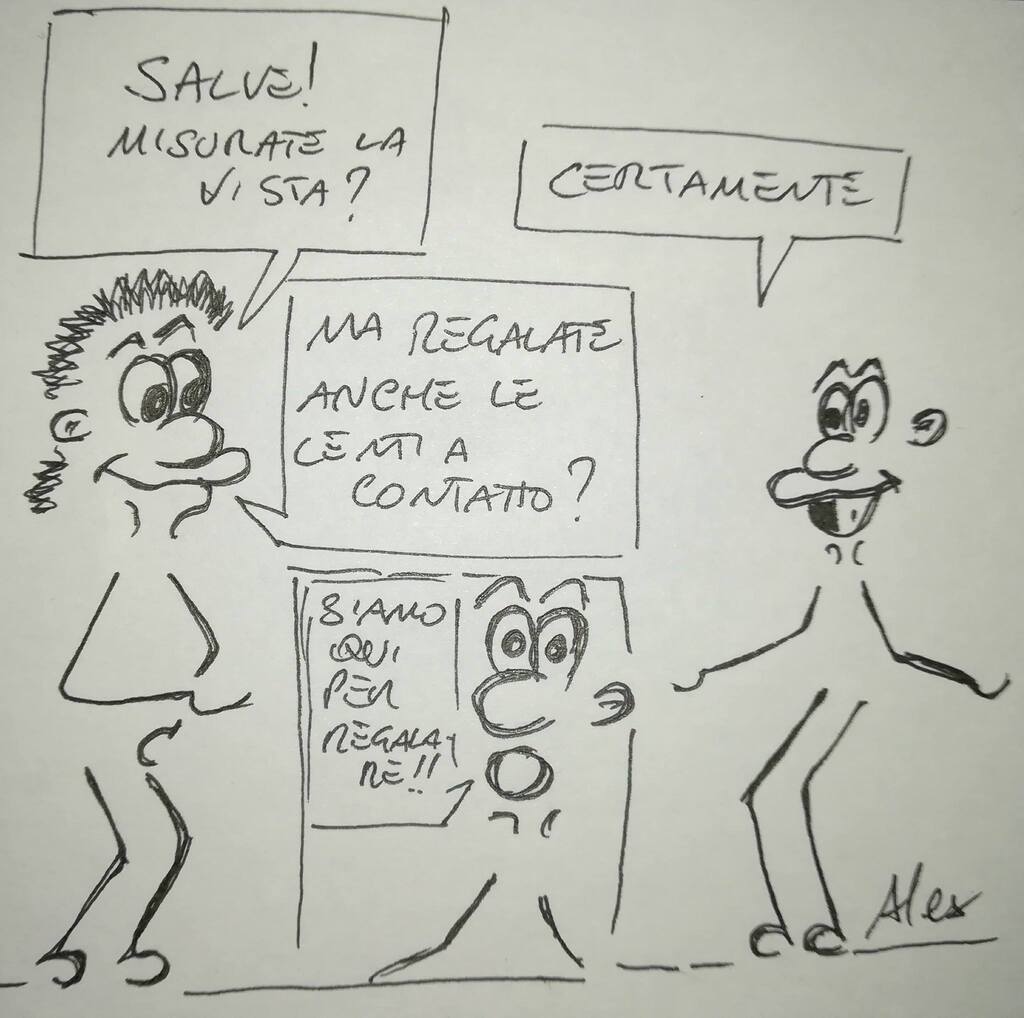 SALVE!
MISURATE LA
VISTA?
CERTAMENTE
MA REGALATE
ANCHE LE
LENTI A
CONTATTO?
SIAMO
QUI
PER
REGALA-
RE!!
Alex